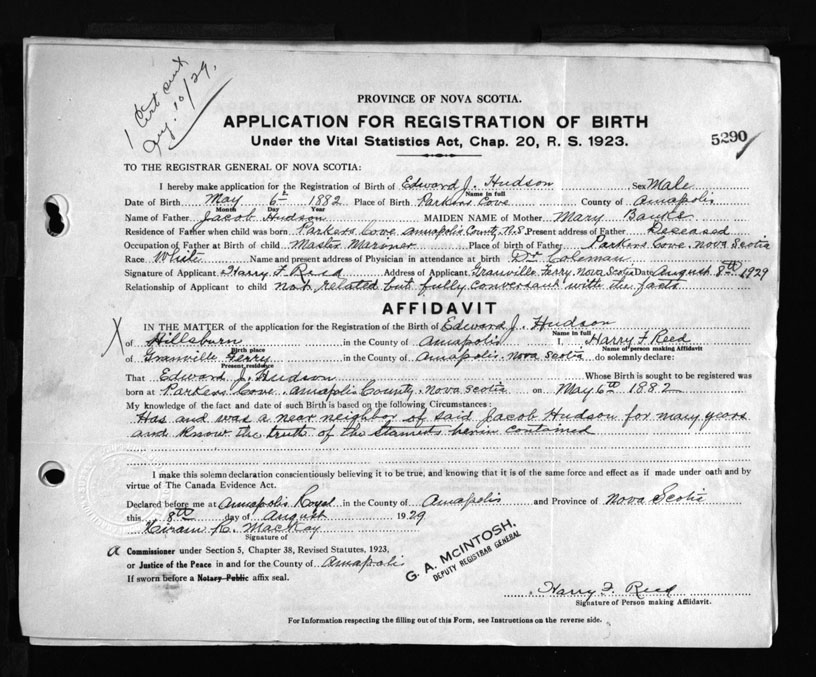 1 Cert sent
Aug. 10/29.
PROVINCE OF NOVA SCOTIA.
APPLICATION FOR REGISTRATION OF BIRTH
Under the Vital Statistics Act, Chap. 20, R. S. 1923.
5290
TO THE REGISTRAR GENERAL OF NOVA SCOTIA:
I hereby make application for the Registration of Birth of Edward J. Hudson Sex Male
Name in full
Date of Birth May 6th 1882 Place of Birth Parkers Cove County of Annapolis
Month Day Year
Name of Father Jacob Hudson MAIDEN NAME of Mother Mary
Residence of Father when child was born Parkers Cove Annapolis County N.S Present address of Father Deceased
Occupation of Father at Birth of child Master Mariner Place of birth of Father Parkers Cove, Nova Scotia
Race White Name and present address of Physician in attendance at birth Dr Coleman
Signature of Applicant Harry F. Reed Address of Applicant Granville Ferry, Nova Scotia Date August 8th 1929
Relationship of Applicant to child not related but fully conversant with the facts
AFFIDAVIT
IN THE MATTER of the application for the Registration of the Birth of Edward J. Hudson
Name in full
X of Hillsburn in the County of Annapolis I, Harry F Reed
Birth place Name of person making Affidavit
of Granville Ferry in the County of Annapolis, Nova Scotia do solemnly declare:
Present residence
That Edward J. Hudson Whose Birth is sought to be registered was
born at Parkers Cove, Annapolis County, Nova Scotia on May 6th 1882
My knowledge of the fact and date of such Birth is based on the following Circumstances:
Has and was a near neighbor of said Jacob Hudson for many years
and know the truth of the herin contained
I make this solemn declaration conscientiously believing it to be true, and knowing that it is of the same force and effect as if made under oath and by
virtue of The Canada Evidence Act.
Declared before me at Annapolis Royal in the County of Annapolis and Province of Nova Scotia
this 8th day of August 1929
Hiram K. MacKay
Signature of
a Commissioner under Section 5, Chapter 38, Revised Statutes, 1923,
or Justice of the Peace in and for the County of Annapolis
If sworn before a Notary Public affix seal.
G. A. McINTOSH,
DEPUTY REGISTRAR GENERAL
Harry F. Reed
Signature of Person making Affidavit.
For Information respecting the filling out of this Form, see Instructions on the reverse side.